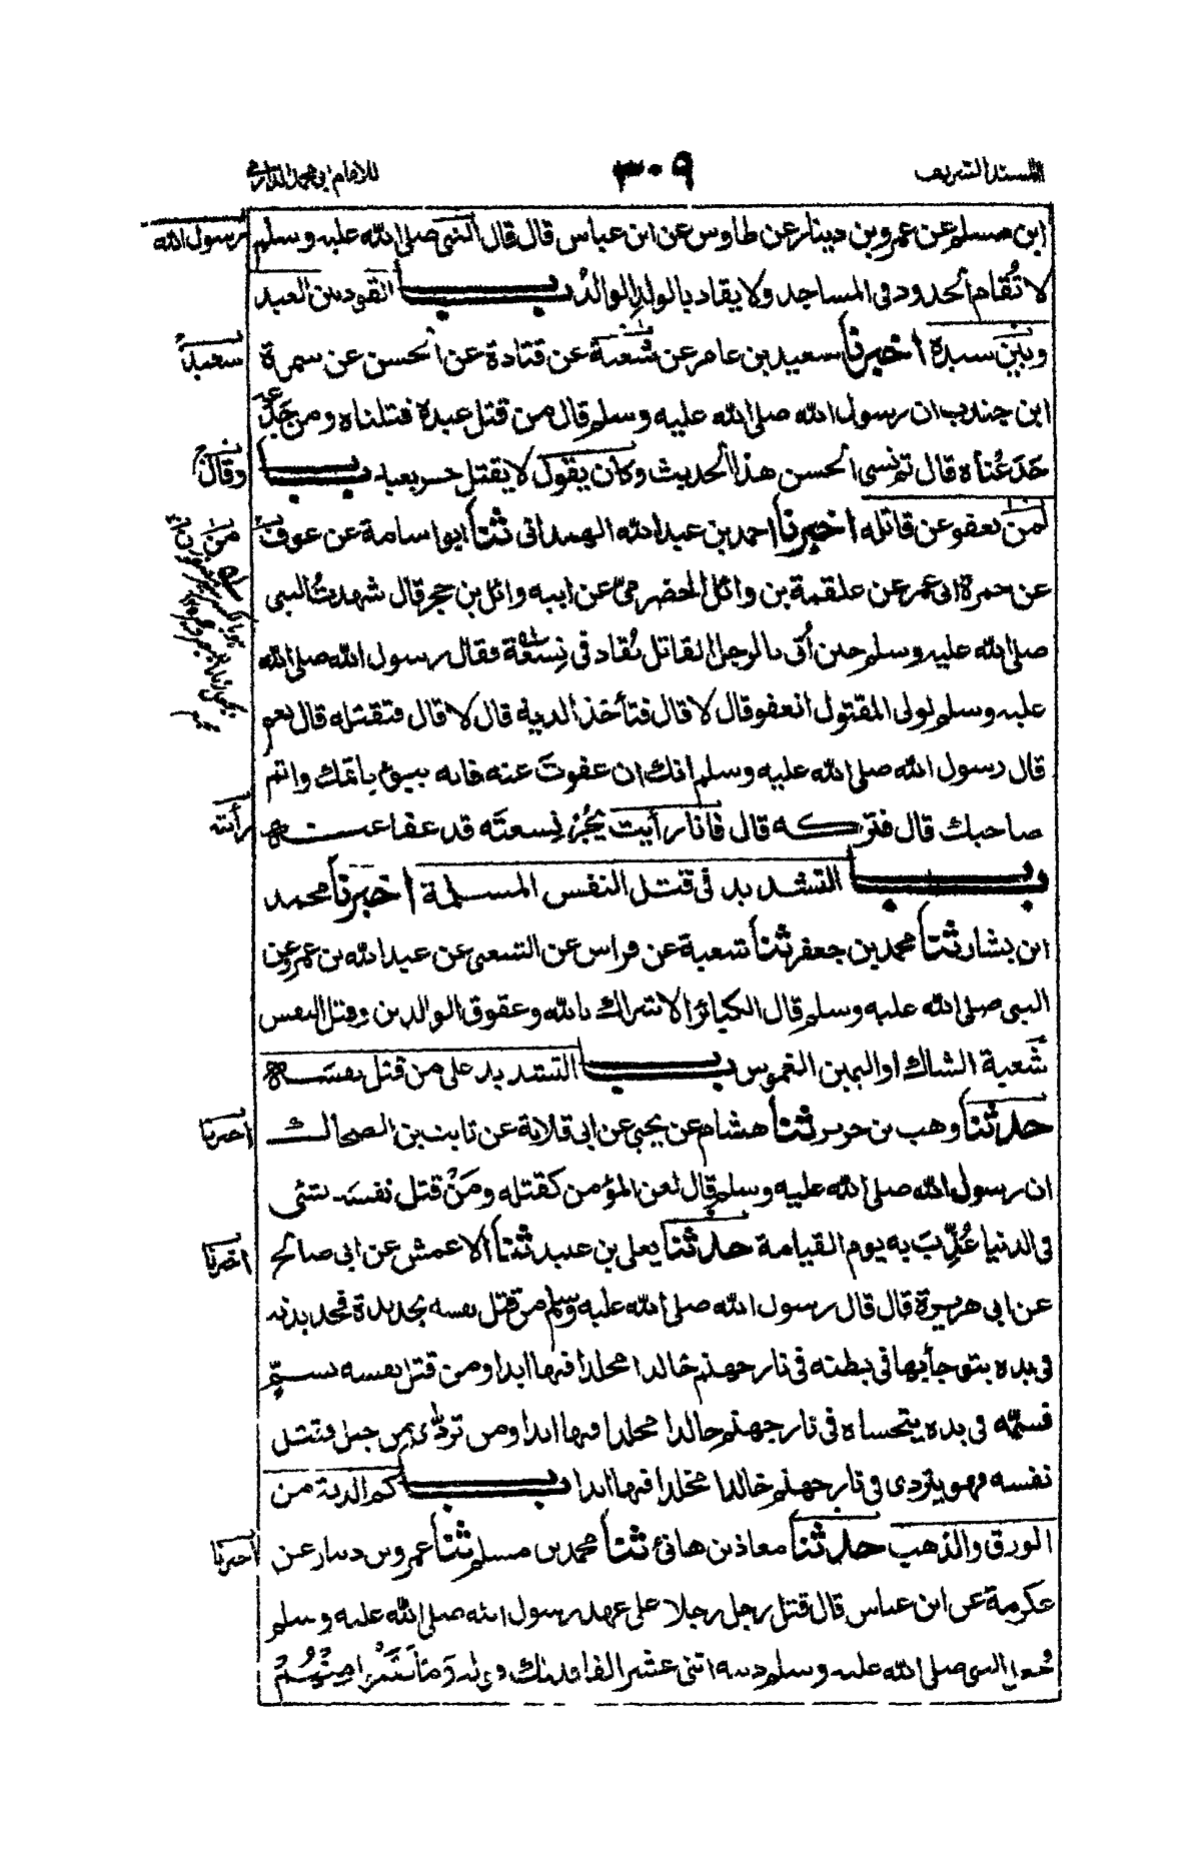 المسند الشريف
٣٠٩
للامام ابي محمد الدارمي
ابن مسلم عن عمرو بن دينار عن طاوس عن ابن عباس قال قال النبي صلى الله عليه وسلم
رسول الله
لا تُقام الحدود في المساجد ولا يقاد بالولد الوالدُ باب القود بين العبد
وبين سيده اخبرنا سعيد بن عامر عن شعبة عن قتادة عن الحسن عن سمرة
سعيد
ابن جندب ان رسول الله صلى الله عليه وسلم قال من قتل عبده قتلناه ومن جَدَعَه
جَدَعْناه قال ثم نسي الحسن هذا الحديث وكان يقول لا يقتل حر بعبد باب
وقال
لمن يعفو عن قاتله اخبرنا احمد بن عبد الله الهمداني ثنا ابو اسامة عن عوف
من
عن حمزة ابي عمر عن علقمة بن وائل الحضرمي عن ابيه وائل بن حجر قال شهدتُ النبي
صلى الله عليه وسلم حين اُتي بالرجل القاتل يُقاد في نِسْعَة فقال رسول الله صلى الله
عليه وسلم لولي المقتول اتعفو قال لا قال فتأخذ الدية قال لا قال فتقتله قال نعم
قال رسول الله صلى الله عليه وسلم انك ان عفوتَ عنه فانه يبوء باثمك واثم
صاحبك قال فتركه قال فانا رأيت يَجُرُّ نِسعتَه قد عفا عنه
رأيته
باب التشديد في قتل النفس المسلمة اخبرنا محمد
ابن بشار ثنا محمد بن جعفر ثنا شعبة عن فراس عن الشعبي عن عبد الله بن عمرو عن
النبي صلى الله عليه وسلم قال الكبائر الاشراك بالله وعقوق الوالدين وقتل النفس
شعبة الشاك او اليمين الغموس باب التشديد على من قتل نفسه
حدثنا وهب بن جرير ثنا هشام عن يحيى عن ابي قلابة عن ثابت بن الضحاك
اخبرنا
ان رسول الله صلى الله عليه وسلم قال لعن المؤمن كقتله ومَنْ قتل نفسه بشئ
في الدنيا عُذِّبَ به يوم القيامة حدثنا يعلى بن عبيد ثنا الاعمش عن ابي صالح
اخبرنا
عن ابي هريرة قال قال رسول الله صلى الله عليه وسلم من قتل نفسه بحديدة فحديدته
في يده يتوجأ بها في بطنه في نار جهنم خالدا مخلدا فيها ابدا ومن قتل نفسه بسمٍّ
فسمّه في يده يتحساه في نار جهنم خالدا مخلدا فيها ابدا ومن تردّى من جبل فقتل
نفسه فهو يتردى في نار جهنم خالدا مخلدا فيها ابدا باب كم الدية من
الورق والذهب حدثنا معاذ بن هانئ ثنا محمد بن مسلم ثنا عمرو بن دينار عن
اخبرنا
عكرمة عن ابن عباس قال قتل رجل رجلا على عهد رسول الله صلى الله عليه وسلم
فجعل النبي صلى الله عليه وسلم ديته اثني عشر الفا فذلك قوله وَمَا نَقَمُوا